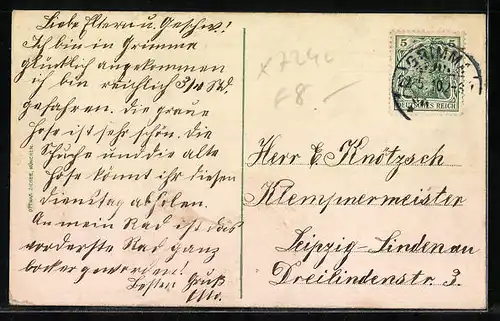 Liebe Eltern u. Geschw!
Ich bin in Grimma
glücklich angekommen
ich bin reichlich 3/4 Std.
gefahren. die graue
Hose ist sehr schön. die
Schuhe und die alte
Hose könnt ihr diesen
Dienstag abholen.
An mein Rad ist das
vorderste Rad ganz
locker geworden.
Besten Gruß
x 7240
F8. —
5 5
GRIMMA
DEUTSCHES REICH
Herr E Knötzsch
Klempnermeister
Leipzig-Lindenau
Dreilindenstr 3.